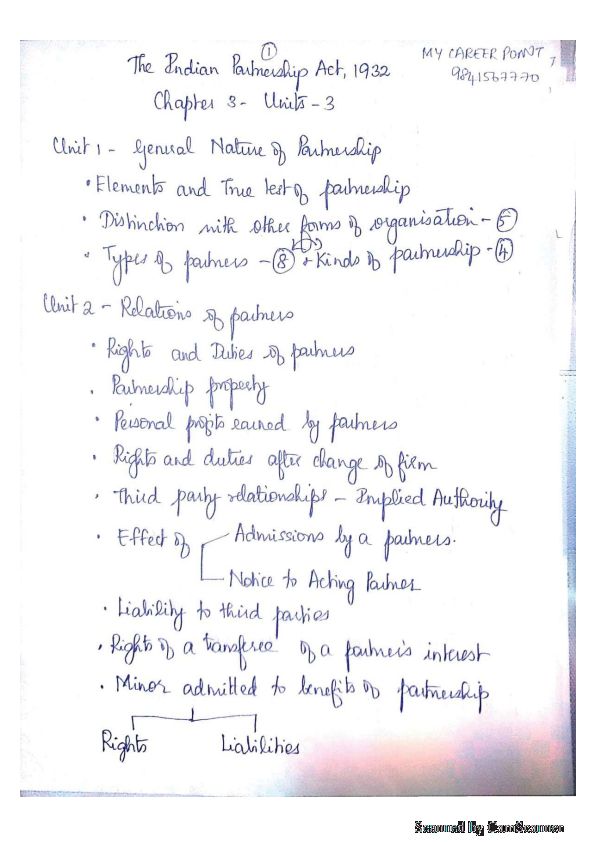 ①
The Indian Partnership Act, 1932
MY CAREER POINT
9841567770
Chapter 3 - Units - 3
Unit 1 - General Nature of Partnership
• Elements and True test of partnership
• Distinction with other forms of organisation - ⑤
• Types of partners - ⑧ + Kinds of partnership - ④
Unit 2 - Relations of partners
• Rights and Duties of partners
• Partnership property
• Personal profits earned by partners
• Rights and duties after change of firm
• Third party relationships - Implied Authority
• Effect of
Admissions by a partners.
Notice to Acting Partner
• Liability to third parties
• Rights of a transferee of a partner's interest
• Minor admitted to benefits of partnership
Rights
Liabilities
Scanned By